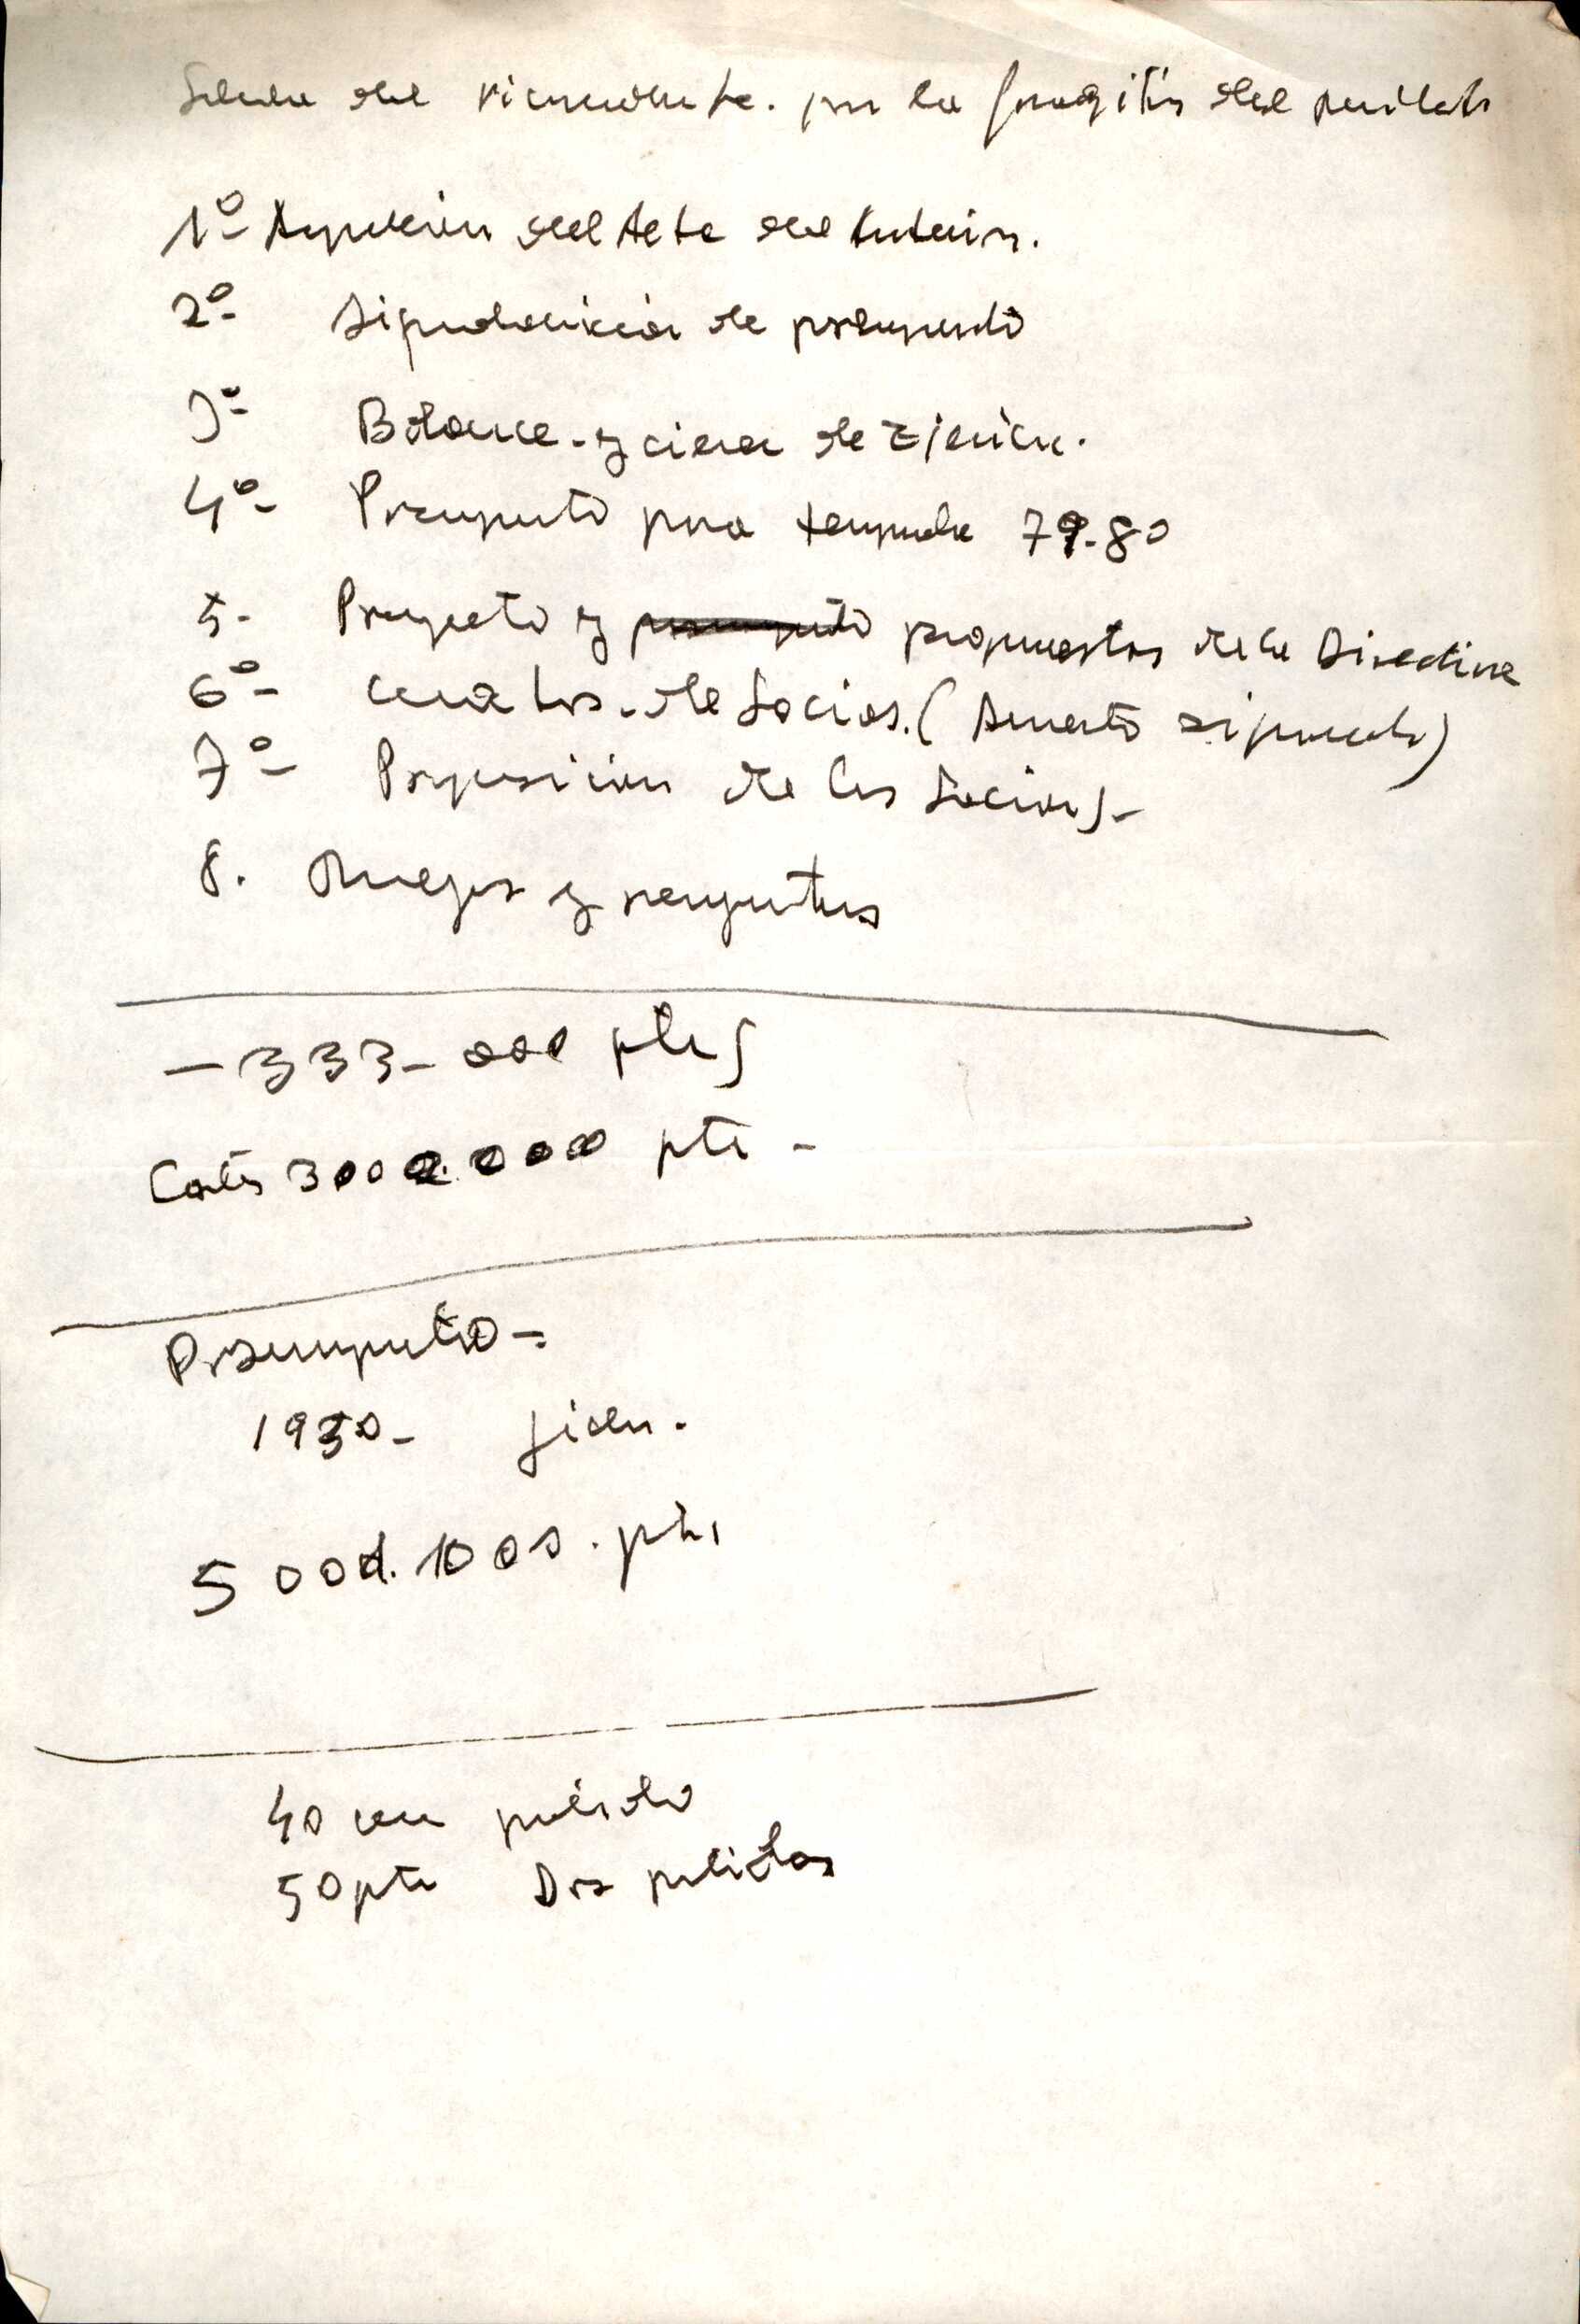 Saluda del vicepresidente. por la
1º- Aprobación del Acta del anterior.
2º- Liquidación de presupuesto
3º- Balance - y cierre de Ejercicio.
4º- Presupuesto para temporada 79-80
5- Proyecto y presupuesto propuestas de la Directiva
6º- cuotas de Socios. (Aumento
7º- Proposición de los Socios -
8. Ruegos y preguntas
- 333 - 000 ptes
Costes 3000.000 pts -
Presupuesto -
1980 -
5000.1000. pts,
40 un partido
50 pts Dos partidos